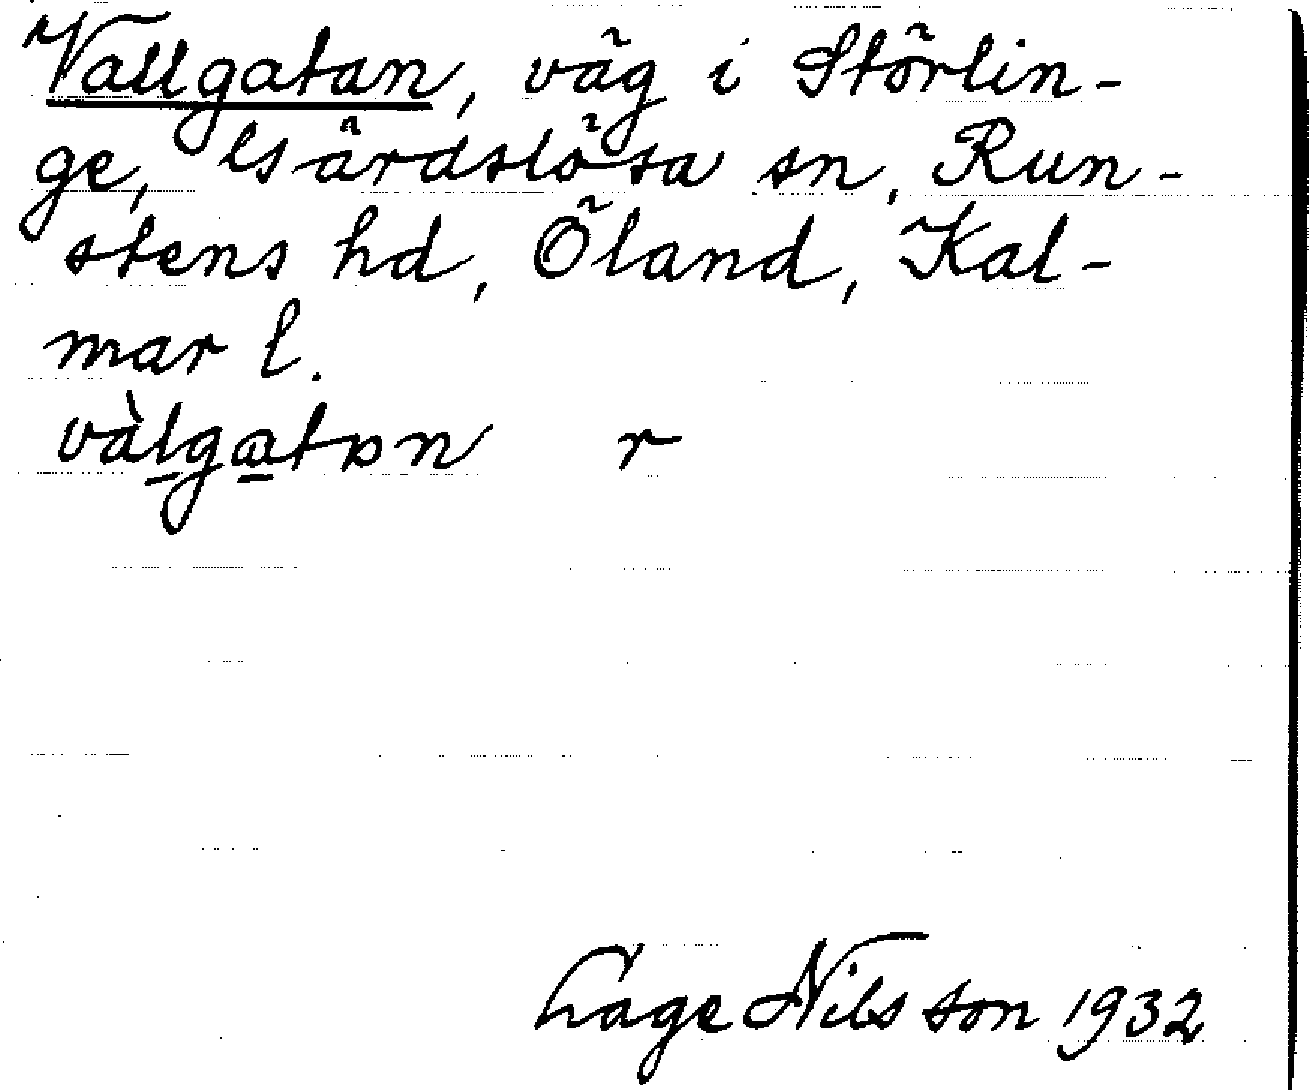 Vallgatan, väg i Störlin-
ge, Gärdslösa sn, Run-
stens hd, Öland, Kal-
mar l.
vàlgatɒn r
Lage Nilsson 1932